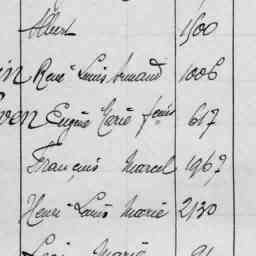 Albert 1500
in René Louis Armand 1006
ven Eugène Marie Louis 617
François Marcel 1967
Henri Louis Marie 2130
Marie